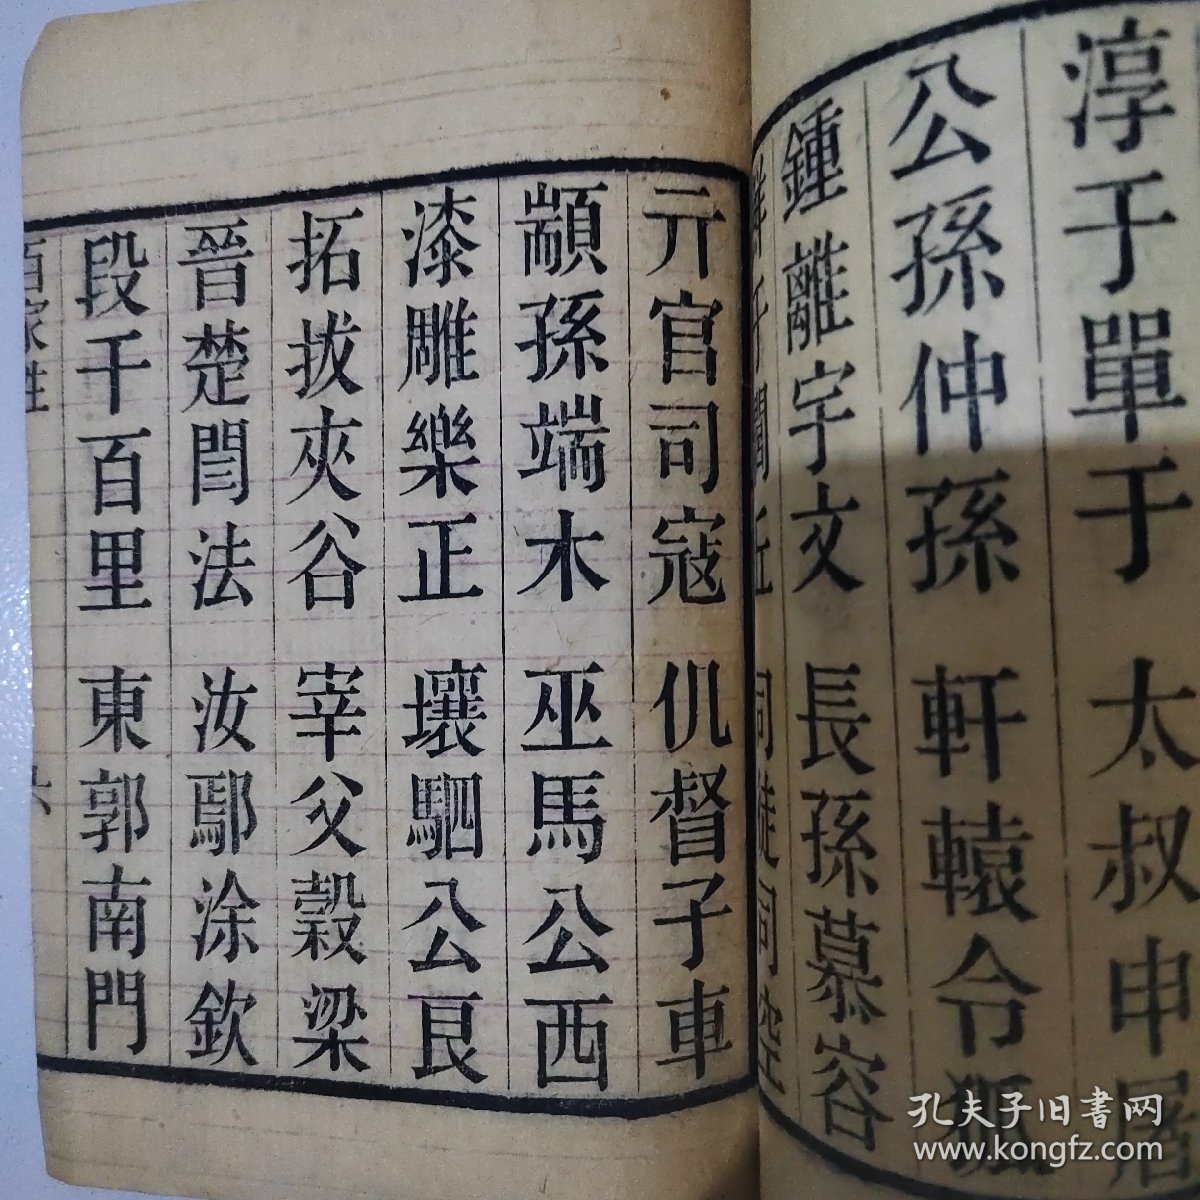 淳于單于 太叔申屠
公孫仲孫 軒轅令狐
鍾離宇文 長孫慕容
鮮于閭丘 司徒司空
亓官司寇 仉督子車
顓孫端木 巫馬公西
漆雕樂正 壤駟公良
拓拔夾谷 宰父穀梁
晉楚閆法 汝鄢涂欽
段干百里 東郭南門
百家姓 六
孔夫子旧书网
www.kongfz.com